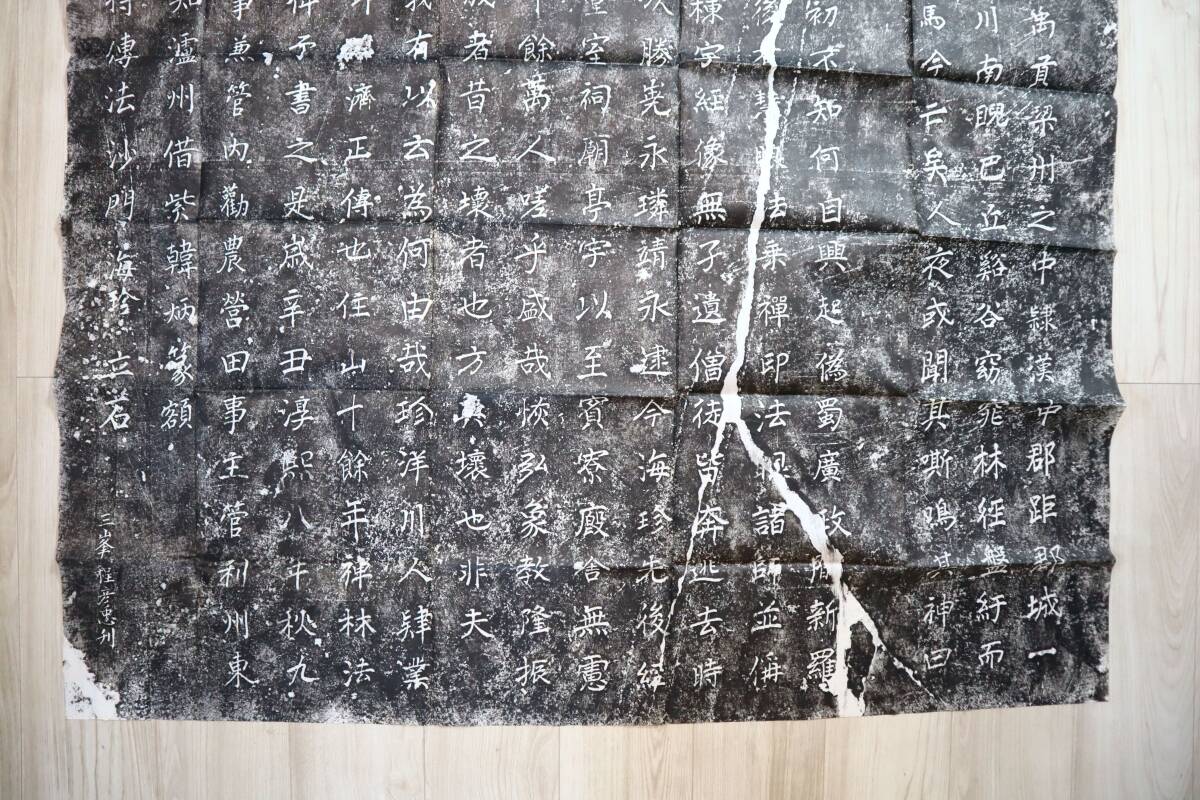 禹貢梁州之中隸漢中郡距郡城一
川南睨巴丘谿谷窈窕林經盤紆而
馬今亡矣人夜或聞其嘶鳴其神曰
初不知何自興起偽蜀廣政間新羅
後法乗禪印法諸師並偁
棟宇經像無孑遺僧徒皆奔逃去時
勝堯永璘靖永逮今海珍先後經
堂室祠廟亭宇以至賓寮廄舍無慮
十餘萬人嗟乎盛哉恢弘象教隆振
成者昔之壞者也方其壞也非夫
我有以玄為何由哉珍洋川人肄業
濟正傳也住山十餘年禅林法
侔予書之是歳辛丑淳熙八年秋九
事兼管內勸農營田事主管利州東
知瀘州借紫韓炳篆額
特傳法沙門海珍立石
三峯刊